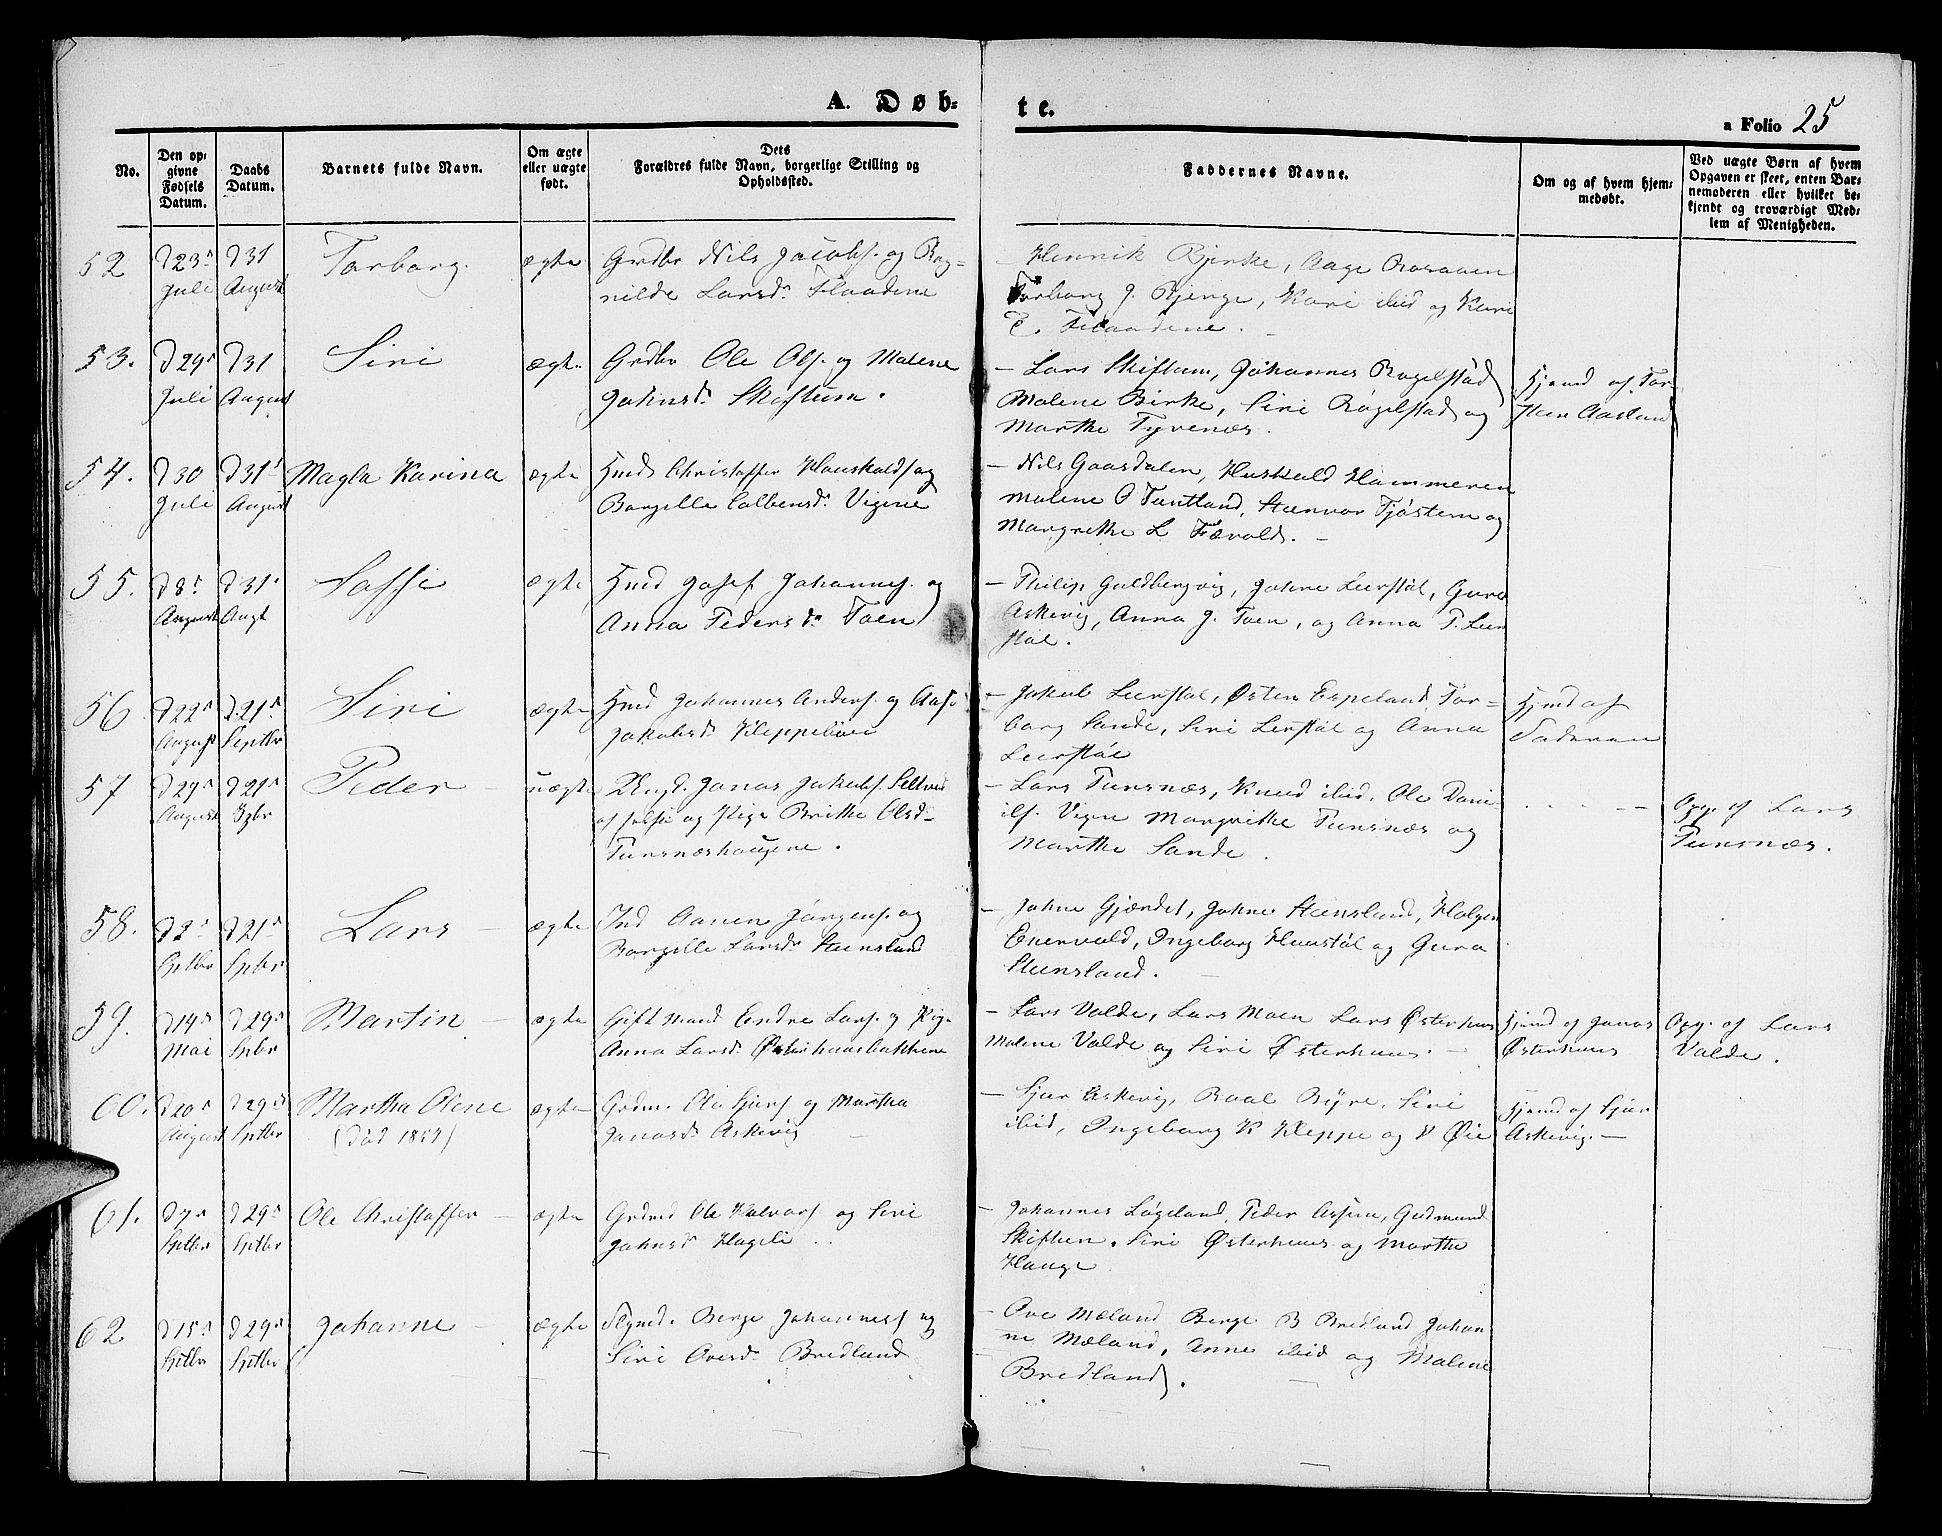 A. Døb-
te.
a Folio 25
No.
Den op-
givne
Fødsels
Datum.
Daabs
Datum.
Barnets fulde Navn.
Om ægte
eller uægte
født.
Dets
Forældres fulde Navn, borgerlige Stilling og
Opholdssted.
Faddernes Navne.
Om og af hvem hjem-
medøbt.
Ved uægte Børn af hvem
Opgaven er skeet, enten Bar-
nemoderen eller hvilket be-
kjendt og troværdigt Med-
lem af Menigheden.
52
d 23
Juli
d 31
August
Torborg.
ægte
Grdbr Nils Jacobs. og Rag-
nilde Larsd. Flaadene
Henrik Bjerke, Aage
Torborg J. Bjenge, Kari ibid og Kari
T. Flaadene.
53.
d 29
Juli
d 31
August
Siri
ægte
Grdbr Ole Ols. og Malene
Johnsd. Skiftum.
Lars Skiftum, Johannes Røgelstad
Malene Birke, Siri Røgelstad og
Marthe Tyvenæs.
Hjemd af Tor-
sten Aasland
54.
d 30
Juli
d 31
August
Magla Karina
ægte
Hmd Christoffer Houskulds og
Borgille Colbensd. Vigene
Nils Gaasdalen, Huskuld Hammeren
Malene O Tuntland, Steenvor Tjøstem og
Margrethe L Fævold.
55.
d 8
August
d 31
Augt
Soffi
ægte
Hmd Josef Johannes. og
Anna Pedersd. Toen
Philip Guldbergvig, Johne Leerstøl, Guro
Askevig, Anna J. Toen, og Anna P. Leer
støl.
56.
d 22
August
d 21
Septbr
Siri
ægte
Hmd Johannes Anders. og Aase
Jakobsd. Kleppelien
Jakob Leerstøl, Østen Espeland, Tor-
borg Sande, Siri Lerstøl og Anna
Leerstøl
Hjemd af
Faderen
57
d 29
August
d 21
Sptbr
Peder
uægte
Ungk. Jonas Jakobs.
og Pige Brithe Olsd.
Tunsnæshougene.
Lars Tunsnæs, Knud ibid, Ole Dani-
els. Vigne Margrethe Tunsnæs og
Marthe Sande.
Opg. af Lars
Tunsnæs.
58.
d 2
Sptbr
d 21
Sptbr
Lars
ægte
Ind Aanen Jørgens. og
Borgille Larsd. Steensland
Johne Gjærdet, Johne Steensland, Holger
Enervold, Ingeborg Haustøl og Guro
Steensland.
59.
d 14
Mai
d 29
Spbr
Martin
ægte
Gift Mand Endre Lars. og Pige
Anna Larsd. Østerhuusbakkene
Lars Valde, Lars Moen Lars Østerhuus
Malene Valde og Siri Østerhuus.
Hjemd af Jonas
Østerhuus
Opg. af Lars
Valde.
60.
d 20
August
d 29
Sptbr
Martha Olene
(død 1857)
ægte
Grdm. Ole Sjurs. og Martha
Jonasd. Askevig
Sjur Askevig, Baal Byre, Siri
ibid, Ingeborg K Kleppe og V Øie
Hjemd af Sjur
Askevig.
61.
d 7
Sptbr
d 29
Sptbr
Ole Christoffer
ægte
Grdmd Ole Halvors. og Siri
Johnsd. Hageli
Johannes Løgeland, Peder Assum, Gudmund
Skiftun, Siri Østerhuus og Marthe
Hauge
62
d 15
Sptbr
d 29
Sptbr
Johanne
ægte
Berge Johannes. og
Siri Ovesd. Bredland
Ove Mæland Berge B Bredland Johan-
ne Mæland, Anne ibid og Malene
Bredland.